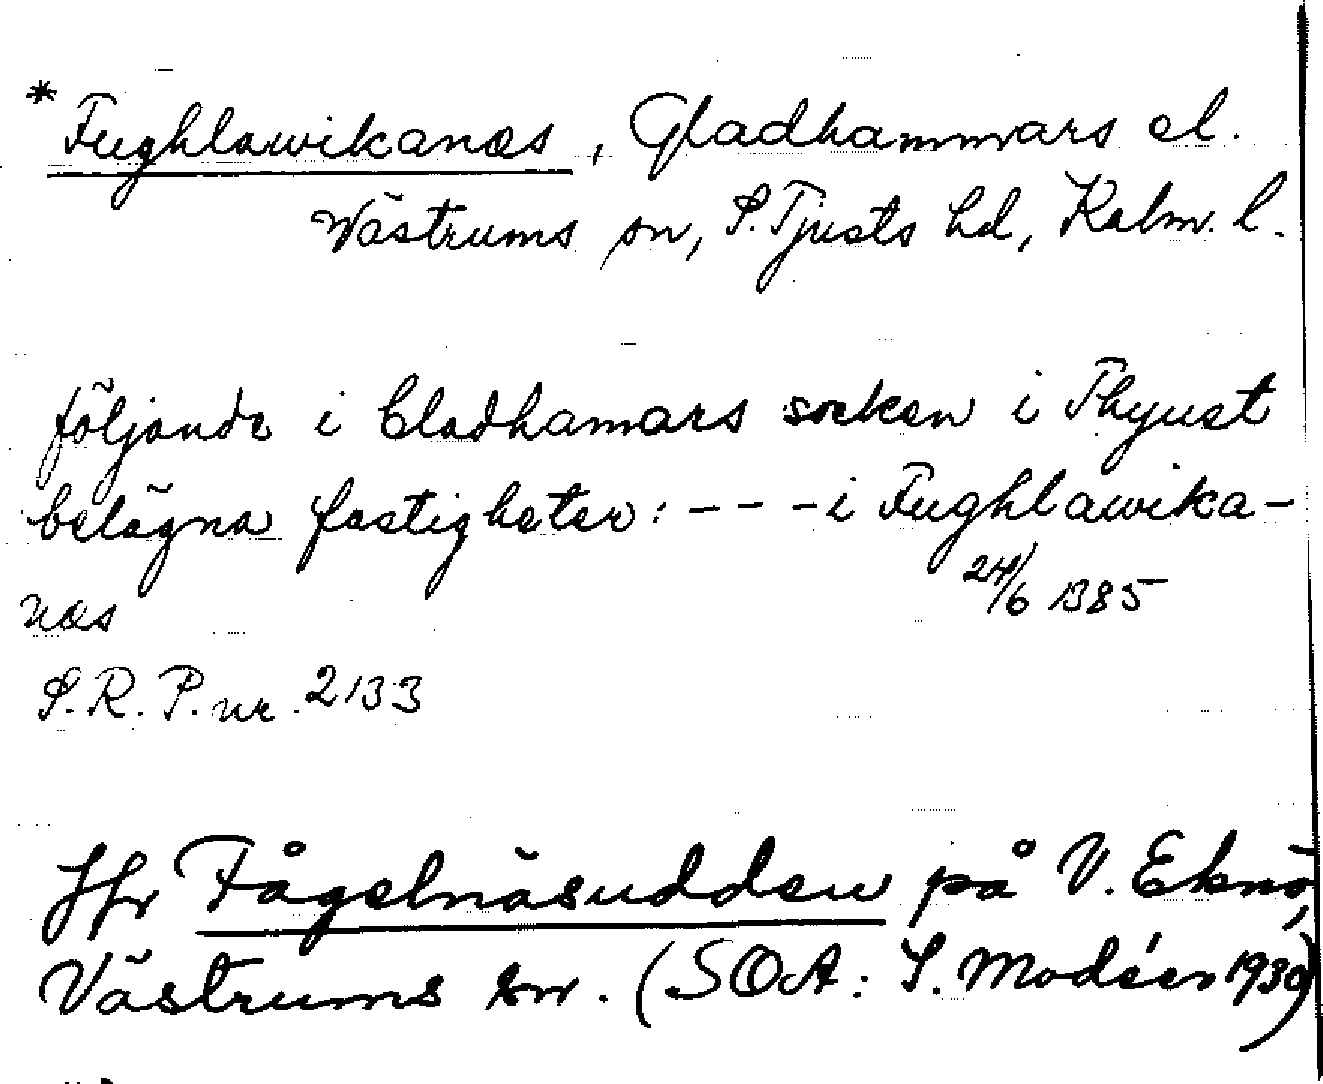 * Fughlawikanæs, Gladhammars el.
Västrums sn, S. Tjusts hd, Kalm. l.
följande i Cladhamars socken i Thyust
belägna fastigheter: - - - i Fughlawika-
næs 24/6 1385
S.R.P. nr. 2133
Jfr Fågelnäsudden på V. Eknö,
Västrums sn. (SOA: I. Modéer 1930)